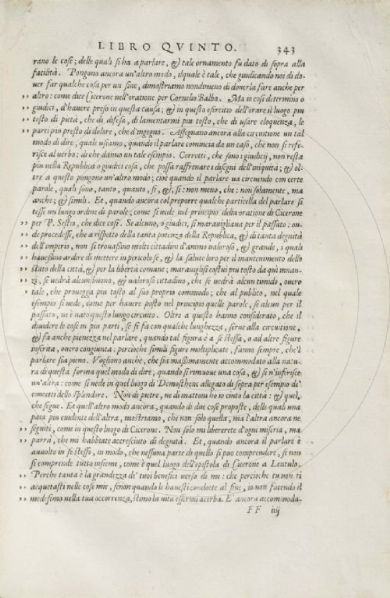 LIBRO QVINTO. 343
rano le cose; delle quali si ha a parlare, & tale ornamento fu dato di sopra alla
facilità. Pongono ancora un'altro modo, ilquale è tale, che giudicando noi di do-
uer far qualche cosa per un fine, dimostriamo nondimeno di douerla fare anche per
altro: come dice Cicerone nell'oratione per Cornelio Balbo. Ma io cosi determino o
giudici, d'hauere preso in questa causa, & in questo esercitio dell'orare il luogo piu
tosto di pietà, che di difesa, di lamentarmi piu tosto, che di usare eloquenza, le
parti piu presto di dolore, che d'ingegno. Assegnano ancora alla circuitione un tal
modo di dire, quali usiamo, quando il parlare comincia da un caso, che non si rife-
risce al uerbo: di che danno un tale esempio. Corretti, che sono i giudicij, non resta
piu nella Republica o giudici cosa, che possa raffrenare i disegni dell'iniquità; & ol-
tre a questo pongono un'altro modo; cioè quando il parlare ua circuendo con certe
parole, quali sono, tanto, quanto, si, &, si: non meno, che: non solamente, ma
anche; & simili. Et, quando ancora col preporre qualche particella del parlare si
tesse un luogo ordine di parole; come si uede nel principio della oratione di Cicerone
per P. Sestio, che dice cosi. Se alcuno, o giudici, si marauigliaua per il passato: on-
de procedesse, che a rispetto della tanta potenza della Republica, & di tanta degnità
dell'imperio, non si trouassino molti cittadini d'animo ualoroso, & grande, i quali
hauessino ardire di mettere in pericolo se, & la salute loro per il mantenimento dello
stato della città, & per la libertà comune; marauigliesi costui piu tosto da qui innan-
zi, se uedrà alcun buono, & ualoroso cittadino, che se uedrà alcun timido, ouero
tale, che prouegga piu tosto al suo proprio commodo; che al publico, nel quale
esempio si uede, come per hauere posto nel principio quelle parole, se alcun per il
passato, ne è nato questo luogo circuito. Oltre a questo hanno considerato, che il
chiudere le cose in piu parti, se si fa con qualche lunghezza, serue alla circuitione,
& fa anche pienezza nel parlare, quando tal figura è a se stessa, o ad altre figure
inserita, ouero congiunta: percioche simili figure moltiplicate, fanno sempre, che'l
parlare sia pieno. Vogliono anche, che sia massimamente accommodato alla natu-
ra di questa forma quel modo di dire, quando si remuoue una cosa, & se n'inferisce
un'altra: come si uede in quel luogo di Demosthene allegato di sopra per esempio de'
concetti dello splendore. Non di pietre, ne di mattoni ho io cinta la città: & quel,
che segue. Et quell'altro modo ancora, quando di due cose proposte, delle quali una
paia piu euidente dell'altra, mostriamo, che non solo quella, ma l'altra ancora ne
seguiti, come in questo luogo di Cicerone. Non solo mi libererete d'ogni miseria, ma
parrà, che mi habbiate accresciuto di degnità. Et, quando ancora il parlare è
auuolto in se stesso, in modo, che nessuna parte di quello si può comprendere, se non
si comprende tutto insieme, come è quel luogo dell'epistola di Cicerone a Lentulo.
Perche tanta è la grandezza de' tuoi benefici uerso di me: che perche tu non ti
acquetasti nelle cose mie, senon quando le hauesti condotte al fine, io non facendo il
medesimo nella tua occorrenza, stimo la uita essermi acerba. E' ancora accommoda-
FF iiij